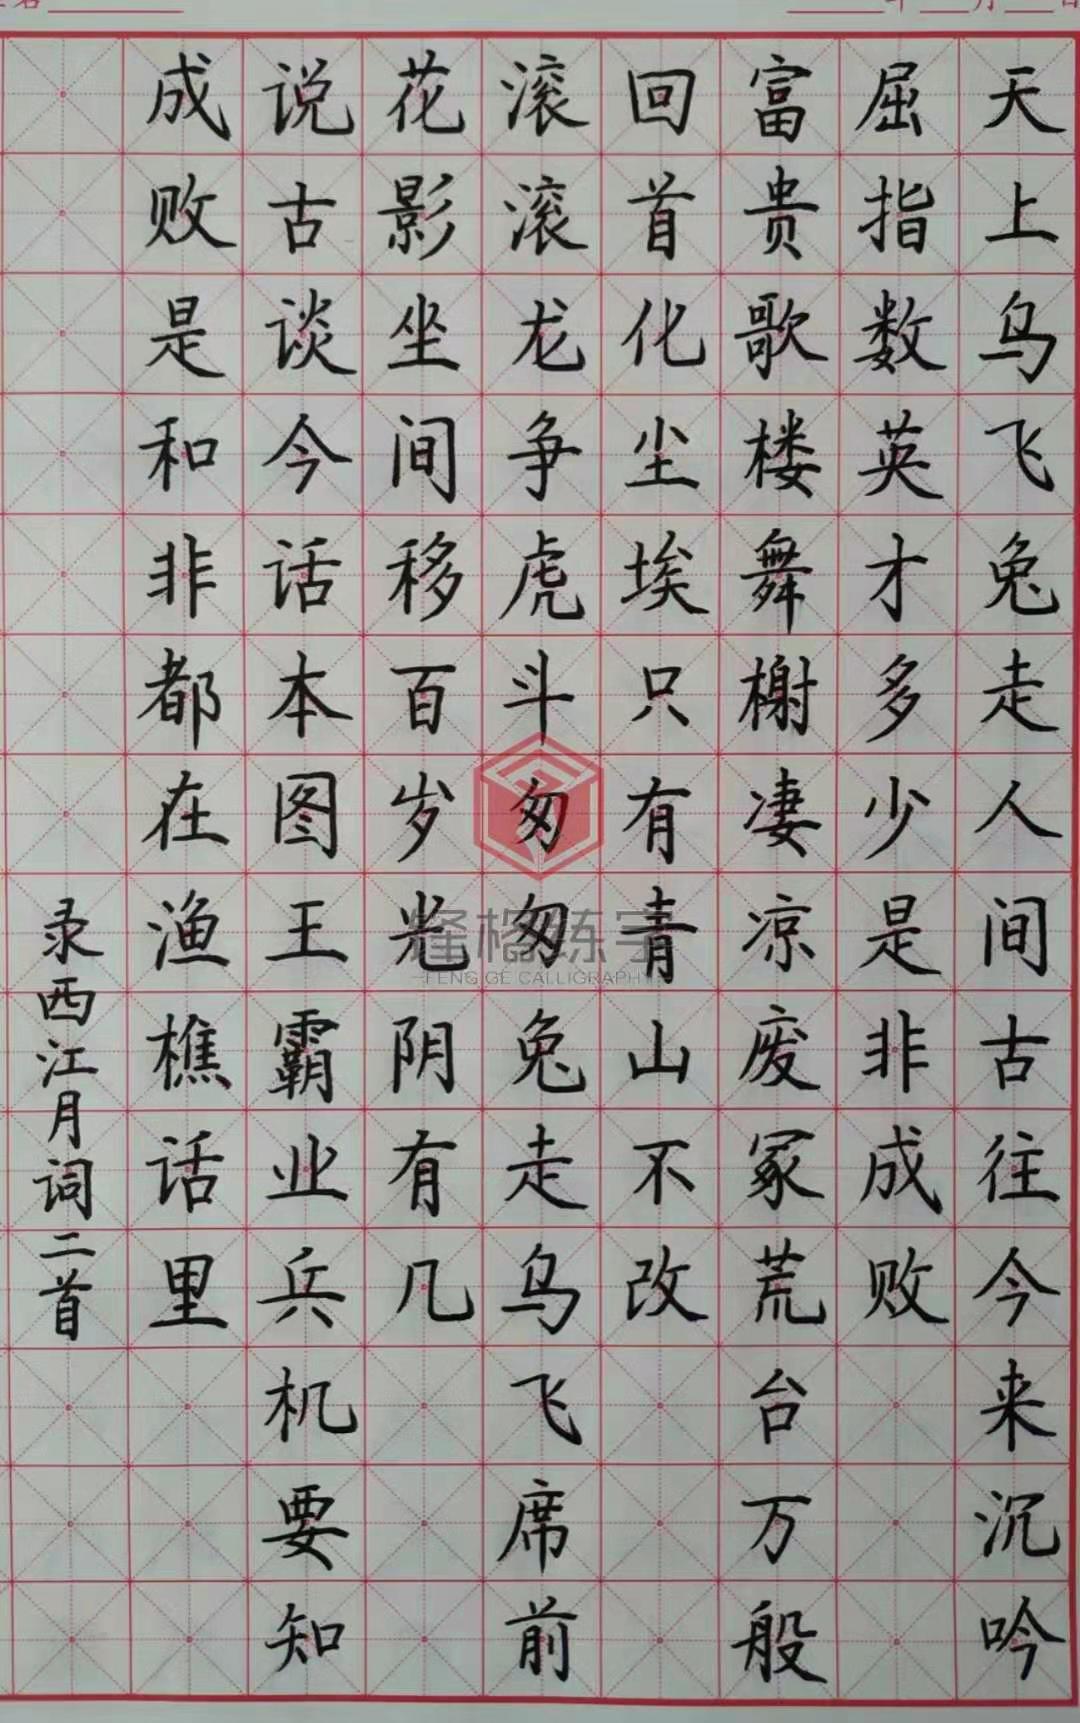 天上乌飞兔走人间古往今来沉吟
屈指数英才多少是非成败
富贵歌楼舞榭凄凉废冢荒台万般
回首化尘埃只有青山不改
滚滚龙争虎斗匆匆兔走乌飞席前
花影坐间移百岁光阴有几
说古谈今话本图王霸业兵机要知
成败是和非都在渔樵话里
录西江月词二首
烽格练字
FENG GE CALLIGRAPHY